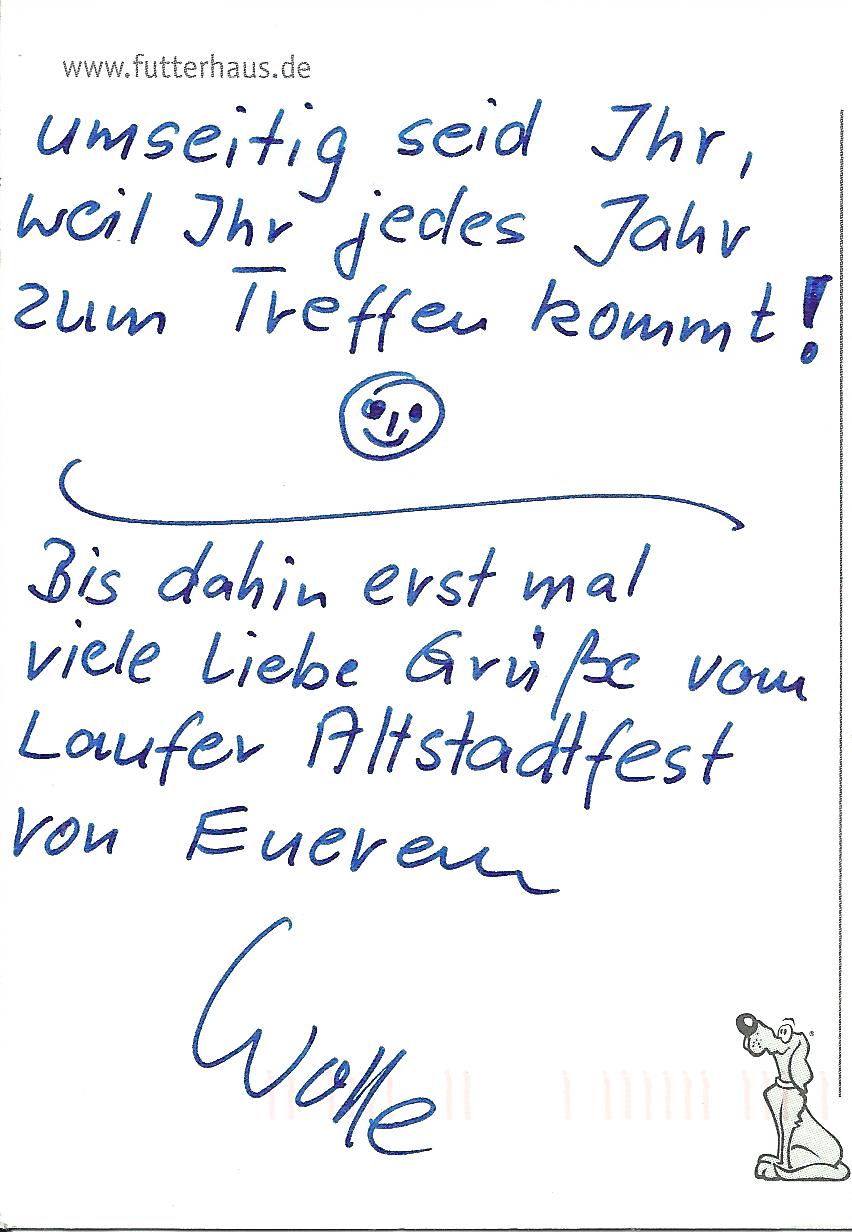 www.futterhaus.de
umseitig seid Ihr,
weil Ihr jedes Jahr
zum Treffen kommt!
Bis dahin erst mal
viele Liebe Grüße vom
Laufer Altstadtfest
von Euerem
Wolle